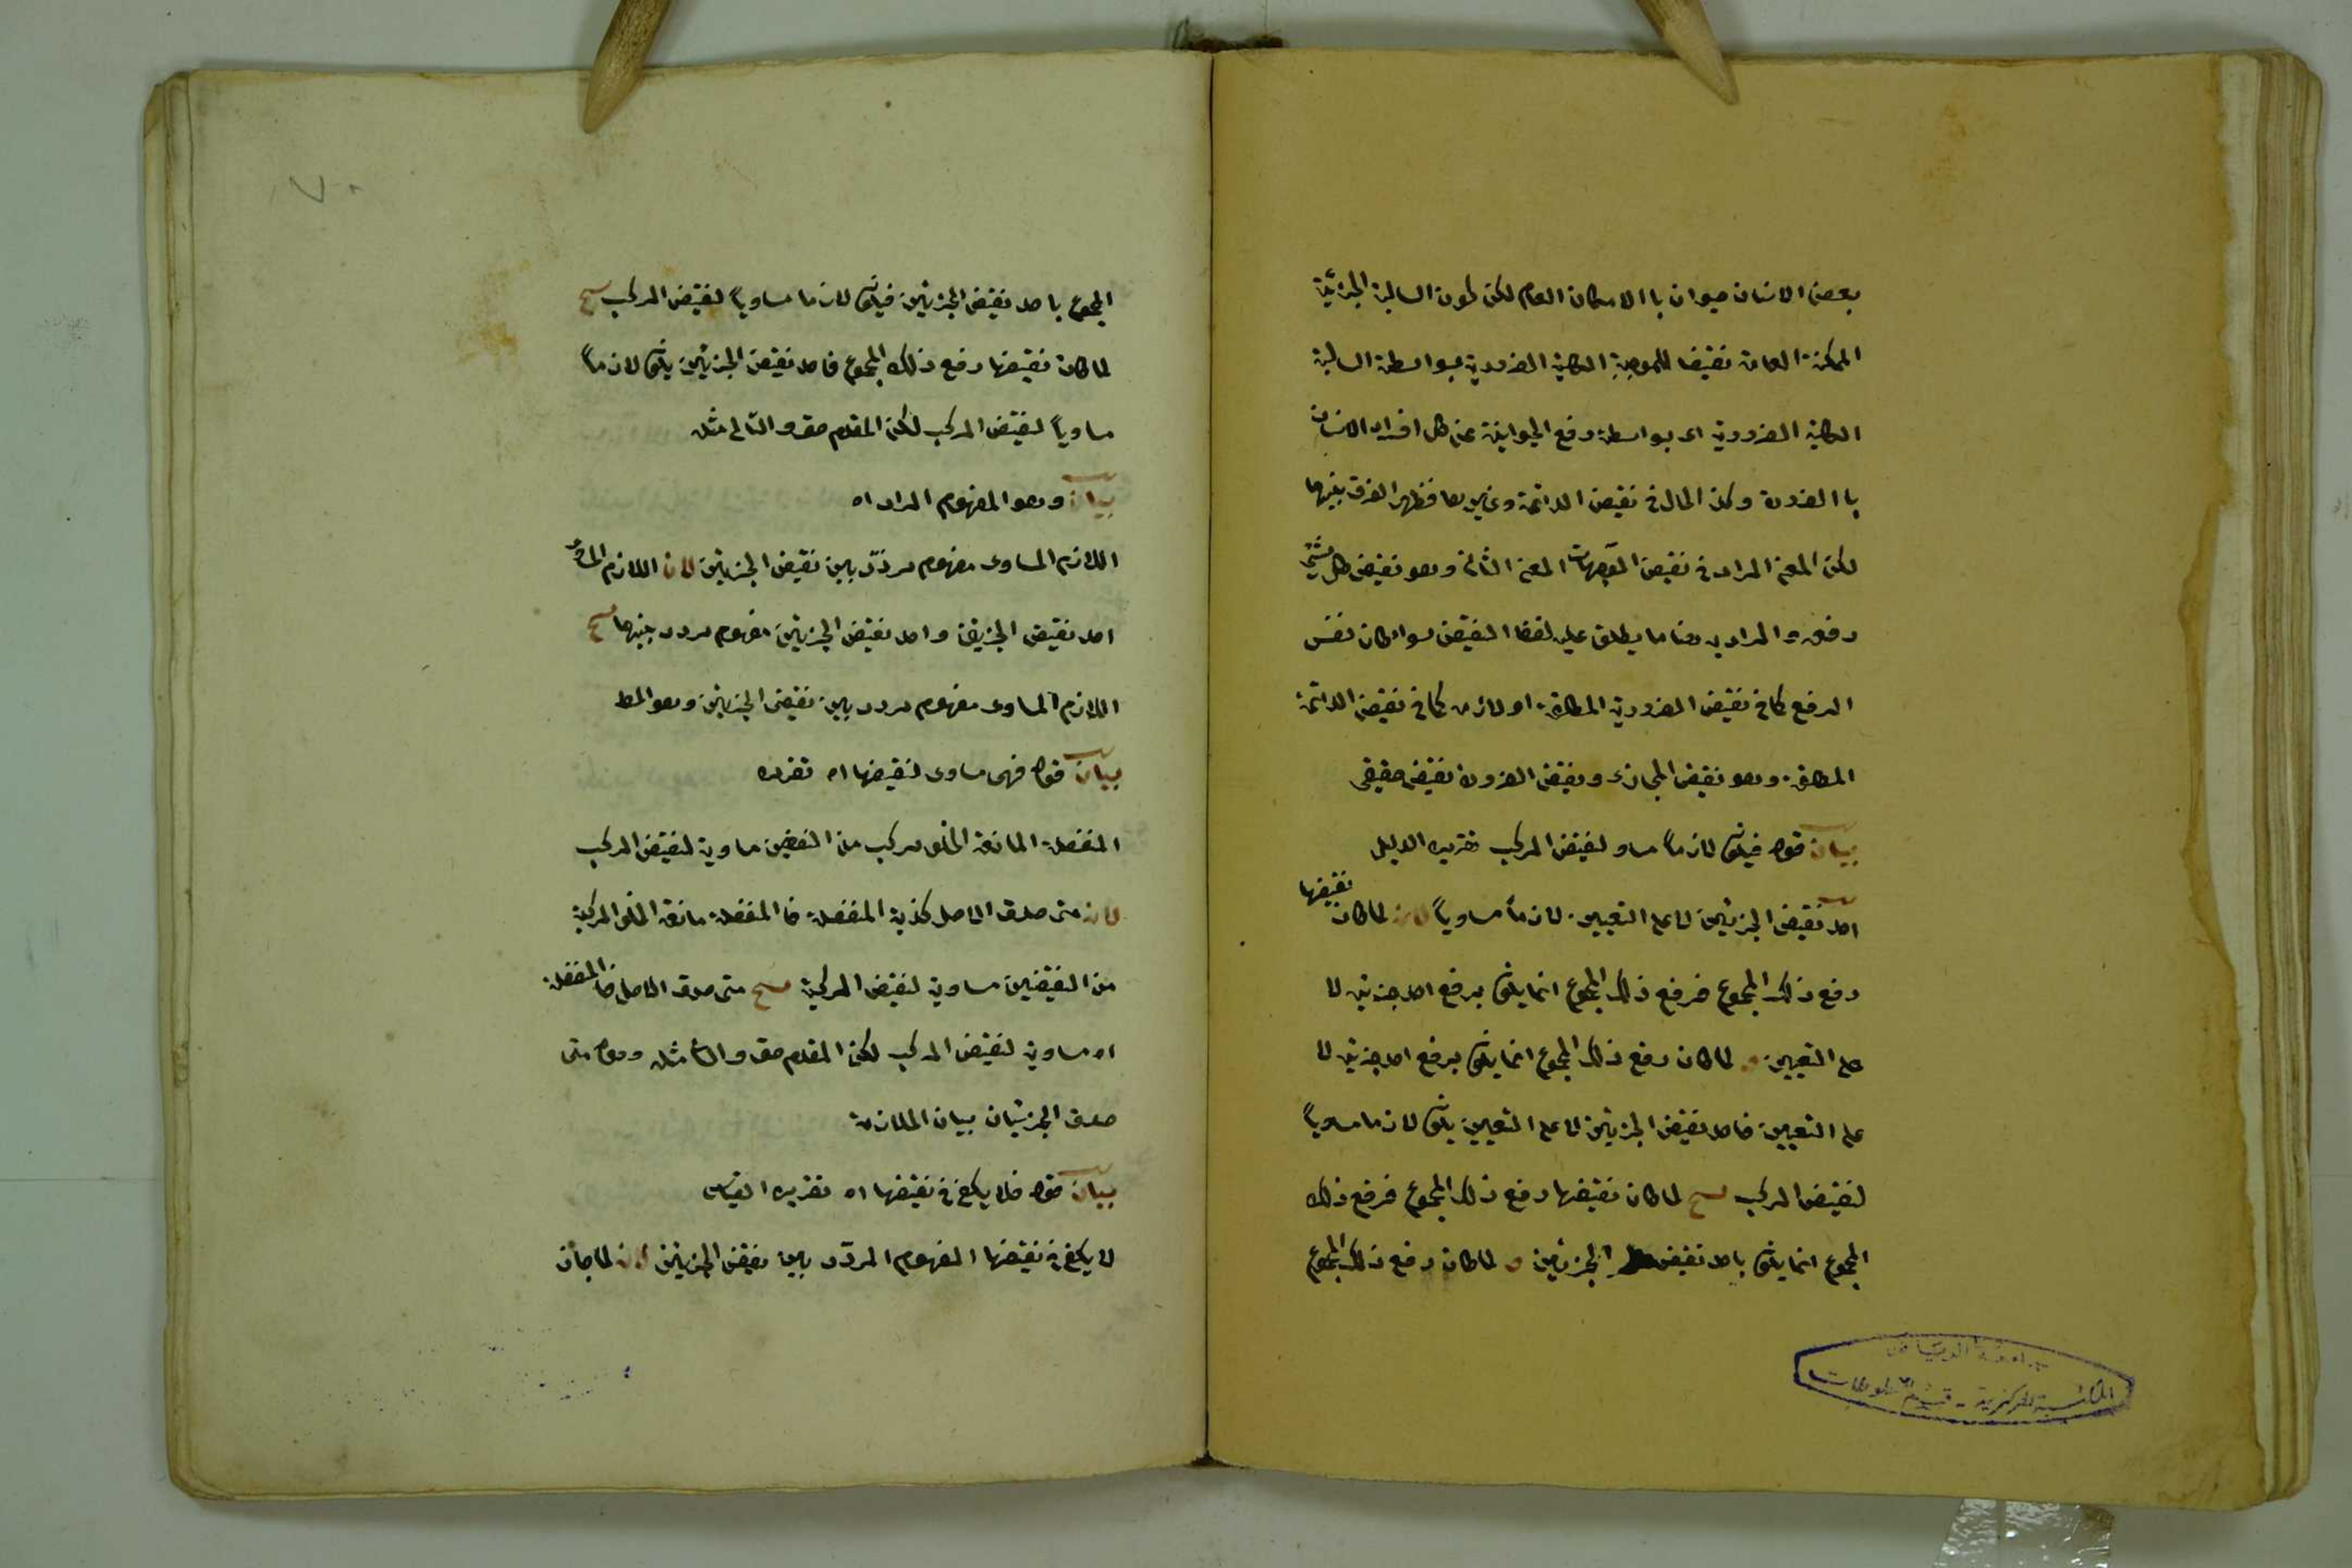 بعض الانسان حيوان با الامكان العام لكن لكون السالبة الجزئية
الممكنة العامة نقيضا للموجبة الكلية الضرورية بواسطة السالبة
الكلية الضرورية اى بواسطة رفع الحيوانية عن كل افراد الانسان
با الضرورة وكذا الحال فى نقيض الدائمة وغيرها فظهر الفرق بينهما
لكن المعنى المراد فى نقيض الموجهات المعنى الثانى وهو نقيض كل شئ
رفعه والمراد به هنا ما يطلق عليه لفظ النقيض سواء كان نفس
الرفع كما فى نقيض الضرورية المطلقة او لازمه كما فى نقيض الدائمة
المطلقة وهو نقيض المجازى ونقيض الضرورة نقيض حقيقى
بيان قوله فيكون لازماً مساو لنقيض المركب تقريره الدليل
احد نقيض الجزئين لا على التعيين لازماً مساوياً لان لما كان نقيضها
رفع ذلك المجموع فرفع ذلك المجموع انما يكون برفع احد جزئيه لا
على التعيين و لما كان رفع ذلك المجموع انما يكون برفع احد جزئيه لا
على التعيين فاحد نقيض الجزئين لا على التعيين يكون لازما مساوياً
لنقيض المركب ينتج لما كان نقيضها رفع ذلك المجموع فرفع ذلك
المجموع انما يكون باحد نقيض الجزئين و لما كان رفع ذلك المجموع
جامعة الرياض
المكتبة المركزية - قسم المخطوطات
٧٠
المجموع باحد نقيض الجزئين فيكون لازما مساوياً لنقيض المركب ينتج
لما كان نقيضها رفع ذلك المجموع فاحد نقيض الجزئين يكون لازماً
مساوياً لنقيض المركب لكن المقدم حق والتالى مثله
بيان وهو المفهوم المراد اه
اللازم المساوى مفهوم مردّد بين نقيض الجزئين لان اللازم المساوى
احد نقيض الجزئين واحد نقيض الجزئين مفهوم مردد بينهما ينتج
اللازم المساوى مفهوم مردد بين نقيض الجزئين وهو المط
بيان قوله فهى مساوى لنقيضها اه تقريره
المنفصلة المانعة الخلو مركب من النقيضين مساوية لنقيض المركب
لان متى صدق الاصل كذبة المنفصلة فا المنفصلة مانعة الخلو المركبة
من النقيضين مساوية لنقيض المركبة ينتج متى صدق الاصل فا المنفصلة
اه مساوية لنقيض المركب لكن المقدم حق والتا مثله وقوله متى
صدق الجزئيان بيان الملازمة
بيان قوله فلا يكفى فى نقيضها اه تقريره القياس
لا يكفى فى نقيضها المفهوم المردّد بين نقيض الجزئين لان لما جاز